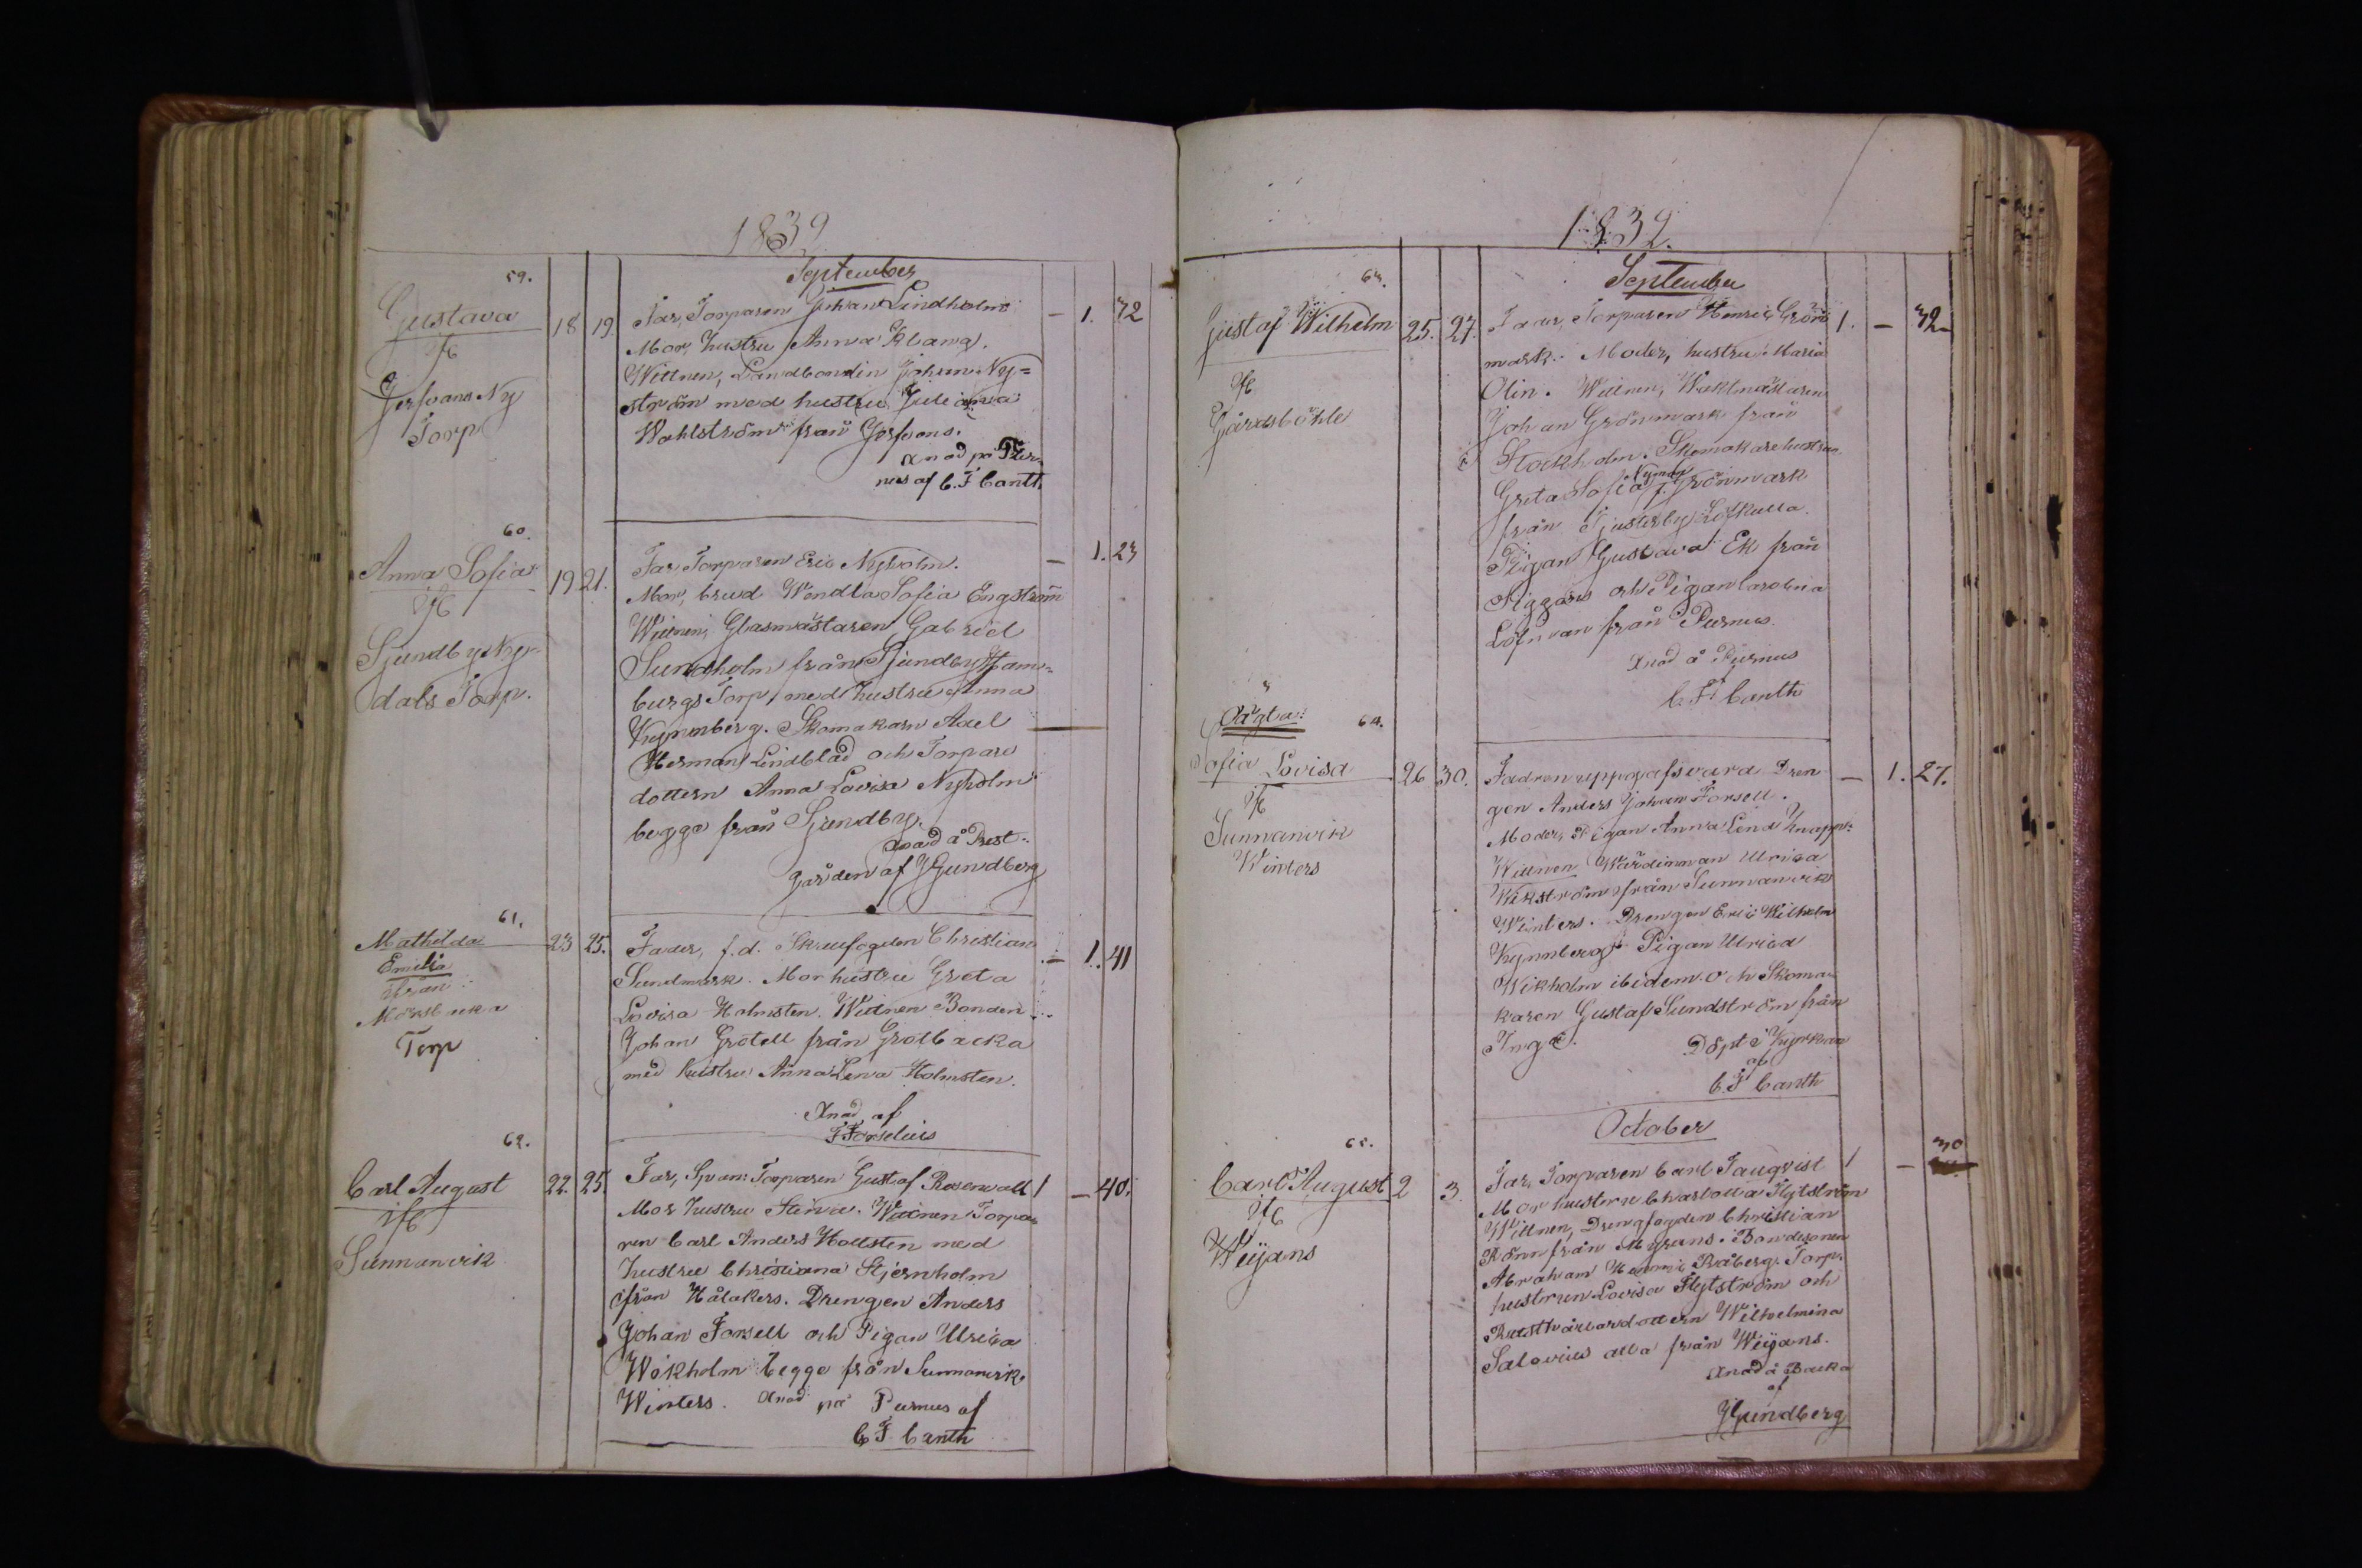 1839
September
59.
Gustava
18 19. Far, Torparen Johan Lindholm — 1. 32
Mor, hustru Anna Klang.
Wittnen, Landbonden Johan Ny=
ström med hustru Juliana
Wahlström från Gerfvans.
Gerfvans Ny
Torp
död på Purnus
af C. F. Canth
60.
Anna Sofia
19 21. Far, Torparen Eric Nyholm. — 1. 23
Mor, brud Wendla Sofia Engström
Wittnen, Glasmästaren Gabriel
Sundholm från Sjundby
burgs Torp, med hustru Anna
Kynnberg. Skomakaren Axel
Herman Lindblad och Torpare
dottern Anna Lovisa Nyholm
begge från Sjundby.
Sjundby Ny=
dals Torp.
å Prest=
gården af Gundberg
61.
Mathilda
Emelia
från
Torp
23 25. Fader, f.d. Christian — 1. 41
Sundmark. Mor hustru Greta
Lovisa Holmsten. Wittnen Bonden
Johan Grotell från Grotbacka
med hustru Anna Lena Holmsten.
af
F Forselius
62.
Carl August
Sunnanvik
22. 25. Far, Torparen Gustaf Rosenvall 1 — 40.
Mor hustru Stina. Wittnen Torpa
ren Carl Anders Hollsten med
hustru Christiana Stjernholm
ifrån Hålakers. Drengen Anders
Johan Forsell och Pigan Ulrica
Wikholm begge från Sunnanvik
Winters. på Purnus af
C F Canth
1839.
September
63.
Gustaf Wilhelm
Gårdsböhle
25. 27. Far, Torparen Henric Grön 1. — 32
mark. Moder, hustru Maria
Olin. Wittnen, Waktmästaren
Johan Grönmark från
Stockholm. Skomakarehustrun
Greta Sofia Nyman f. Grönmark
från Tjusterby Löfkulla.
Pigan Gustava Ek från
Piggans och Pigan Carolina
Löfman från Purnus.
å Purnus
C. F. Canth
Oägta: 64.
Sofia Lovisa
Sunnanvik
Winters
26 30. Fadren uppgafs vara Dren — 1. 27.
gen Anders Johan Forsell.
Moder, Pigan Anna Lena
Wittnen Wärdinnan Ulrica
Wikström från Sunnanvik
Winters. Drengen Eric Wilhelm
Kynnberg. Pigan Ulrica
Wikholm ibidem. och Skoma
karen Gustaf Sundström från
Ingå.
Döpt i Kyrkan
af
C. F Canth
October
65.
Carl August
Weijans
2 3. Far, Torparen Carl Tauqvist 1 — 30
Mor hustru Charlotta Flytström
Wittnen, Drengfogden Christian
Rönn från Myrans. Bondesonen
Abraham Henric Råberg. Torp.
hustrun Lovisa Flytström och
Rusthållardottern Wilhelmina
Salovius alla från Weijans.
å Backa
af
Gundberg